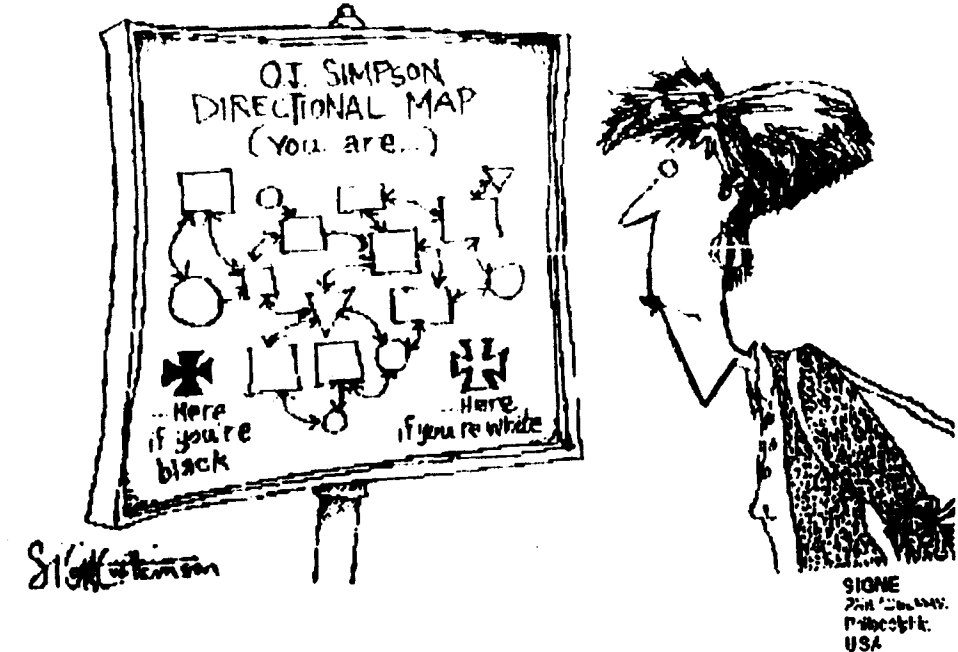 O.J. SIMPSON
DIRECTIONAL MAP
(You are...)
...Here
if you're
black
...Here
if you're white
Signe Wilkinson
SIGNE
USA